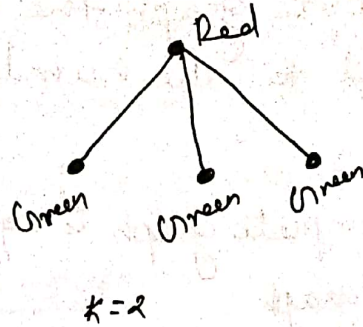 Red
Green Green Green
K=2